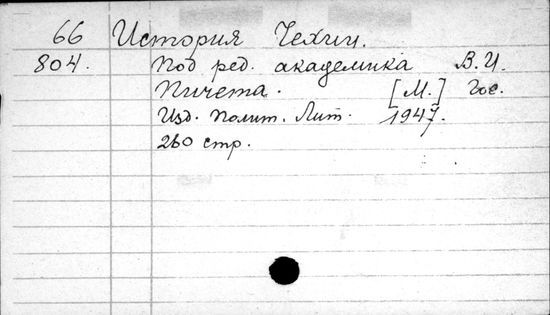 66 История Чехии.
804. Под ред. академика В.И.
Пичета. [М.] Гос.
Изд. Полит. Лит. 1947.
260 стр.